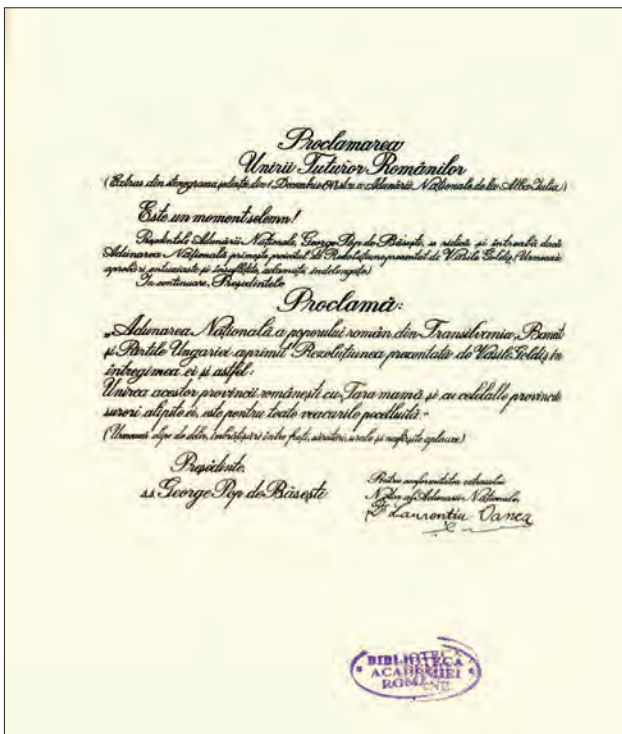 Proclamarea
Unirii Tuturor Românilor
(Extras din stenograma ședinței din 1 Decembrie 1918 a Adunării Naționale de la Alba Iulia)
Este un moment solemn!
Președintele Adunării Naționale, George Pop de Băsești, se ridică și întreabă dacă
Adunarea Națională primește proiectul de Rezoluțiune prezentat de Vasile Goldiș (Urmează
aprobări entuziaste și însuflețite, aclamații îndelungate)
In continuare, Președintele
Proclamă:
„Adunarea Națională a poporului român din Transilvania, Banat
și Părțile Ungariei a primit Rezoluțiunea prezentată de Vasile Goldiș în
întregimea ei și astfel:
Unirea acestor provincii românești cu Țara mamă și cu celelalte provincii
surori, alipite ei, este pentru toate veacurile pecetluită."
(Urmează clipe de delir, îmbrățișări între frați, sărutări, urale și nesfîrșite aplauze)
Președinte,
ss George Pop de Băsești
Pentru conformitatea extrasului
Notar al Adunării Naționale,
Dr Laurentiu Oanea
BIBLIOTECA
ACADEMIEI
ROMÂNE